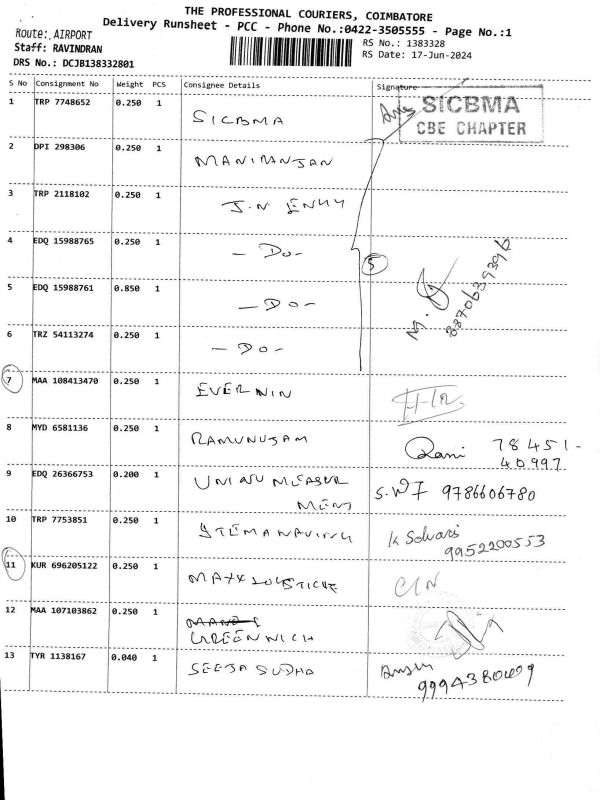 THE PROFESSIONAL COURIERS, COIMBATORE
Delivery Runsheet - PCC - Phone No.:0422-3505555 - Page No.:1
Route: AIRPORT
Staff: RAVINDRAN
DRS No.: DCJB138332801
RS No.: 1383328
RS Date: 17-Jun-2024
S No Consignment No Weight PCS Consignee Details Signature
1 TRP 7748652 0.250 1 SICBMA
SICBMA
CBE CHAPTER
2 DPI 298306 0.250 1 MANIRANJAN
3 TRP 2118102 0.250 1 J.N ENGG
4 EDQ 15988765 0.250 1 - DO -
5
5 EDQ 15988761 0.850 1 - DO -
6 TRZ 54113274 0.250 1 - DO -
7 MAA 108413470 0.250 1 EVERWIN
8 MYD 6581136 0.250 1 RAMUNUJAM Rani 78451-
40997
9 EDQ 26366753 0.200 1 UNIQU MEASUR
MENT 9786606780
10 TRP 7753851 0.250 1 K Selvari
9952200553
11 KUR 696205122 0.250 1
12 MAA 107103862 0.250 1
GREENWICH
13 TYR 1138167 0.040 1 SEEJA SUDHA